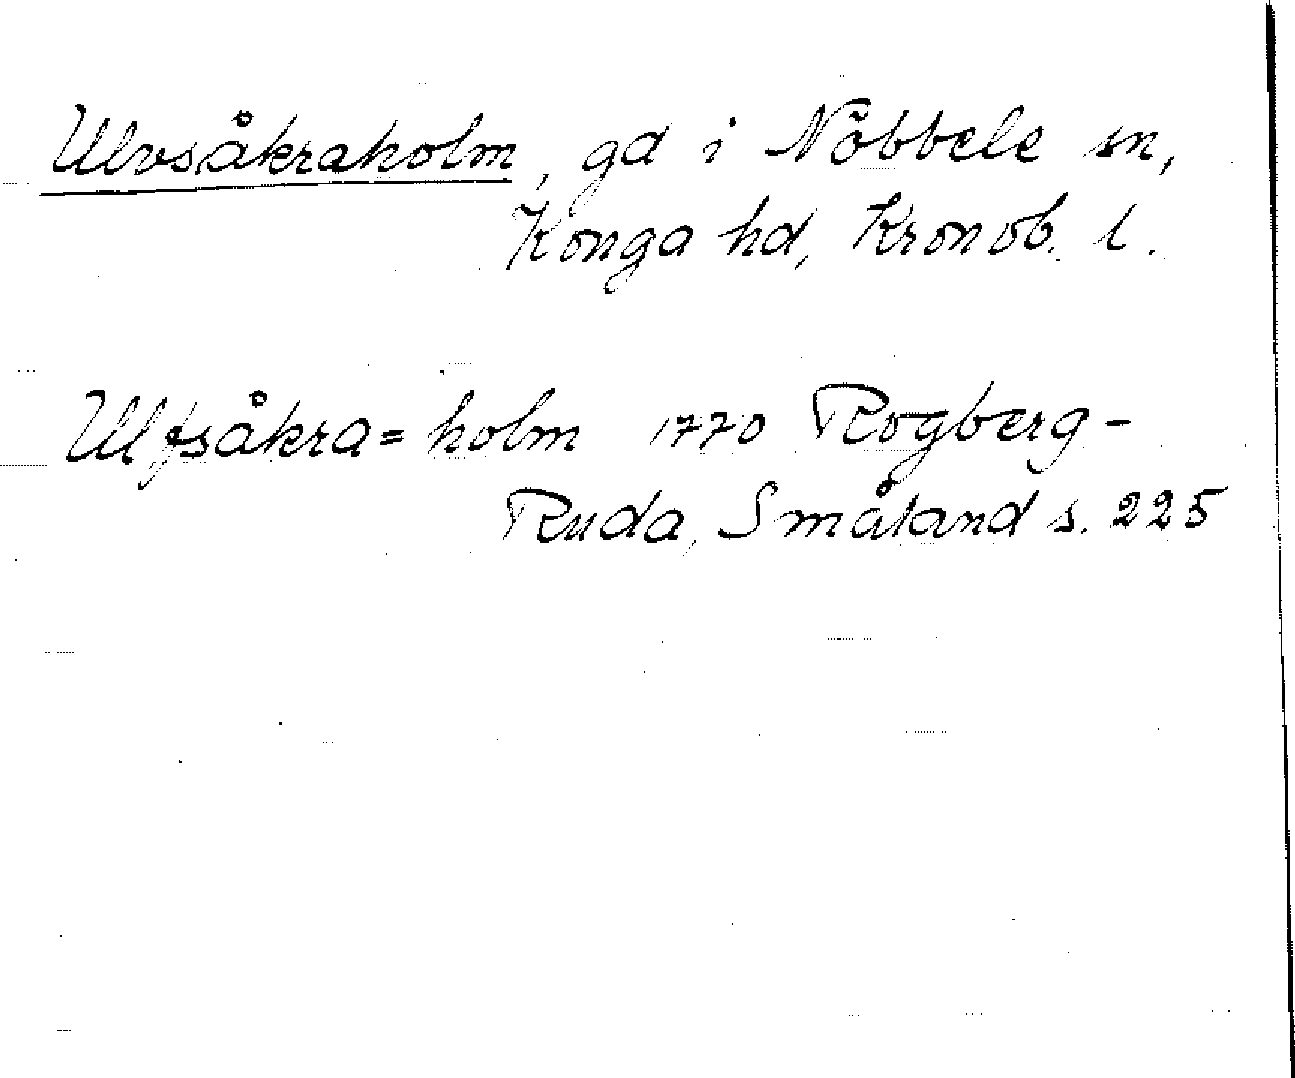 Ulvsåkraholm, gd i Nöbbele sn,
Konga hd, Kronob. l.
Ulfsåkra=holm 1770 Rogberg-
Ruda, Småland s. 225